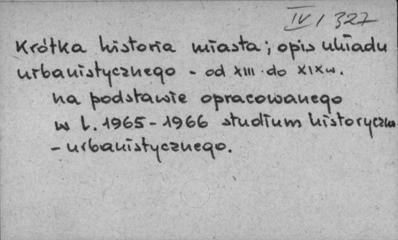 IV/327
Krótka historia miasta; opis układu
urbanistycznego - od XIII do XIX w.
na podstawie opracowanego
w l. 1965-1966 studium historyczno
- urbanistycznego.